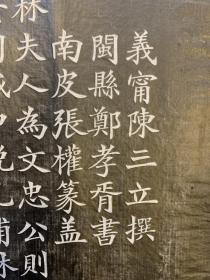 義甯陳三立撰
閩縣鄭孝胥書
南皮張權篆盖
林夫人為文忠公則